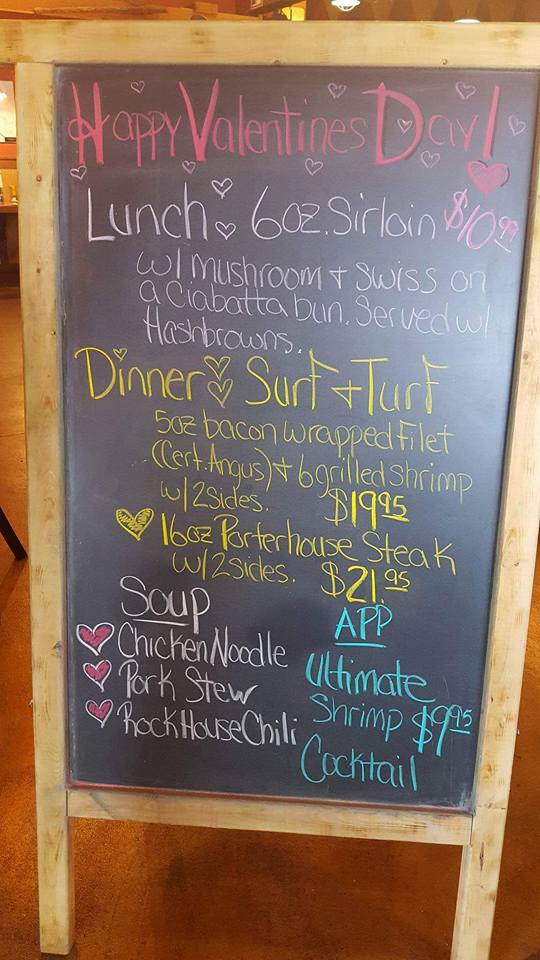 Happy Valentines Day!
Lunch: 6oz. Sirloin $10.99
w/ mushroom + Swiss on
a Ciabatta bun. Served w/
Hashbrowns.
Dinner: Surf + Turf
5oz bacon wrapped Filet
(Cert. Angus) + 6 grilled shrimp
w/ 2 sides. $19.95
16oz Porterhouse Steak
w/ 2 sides. $21.95
Soup
Chicken Noodle
Pork Stew
RockHouse Chili
APP
Ultimate
Shrimp $9.95
Cocktail